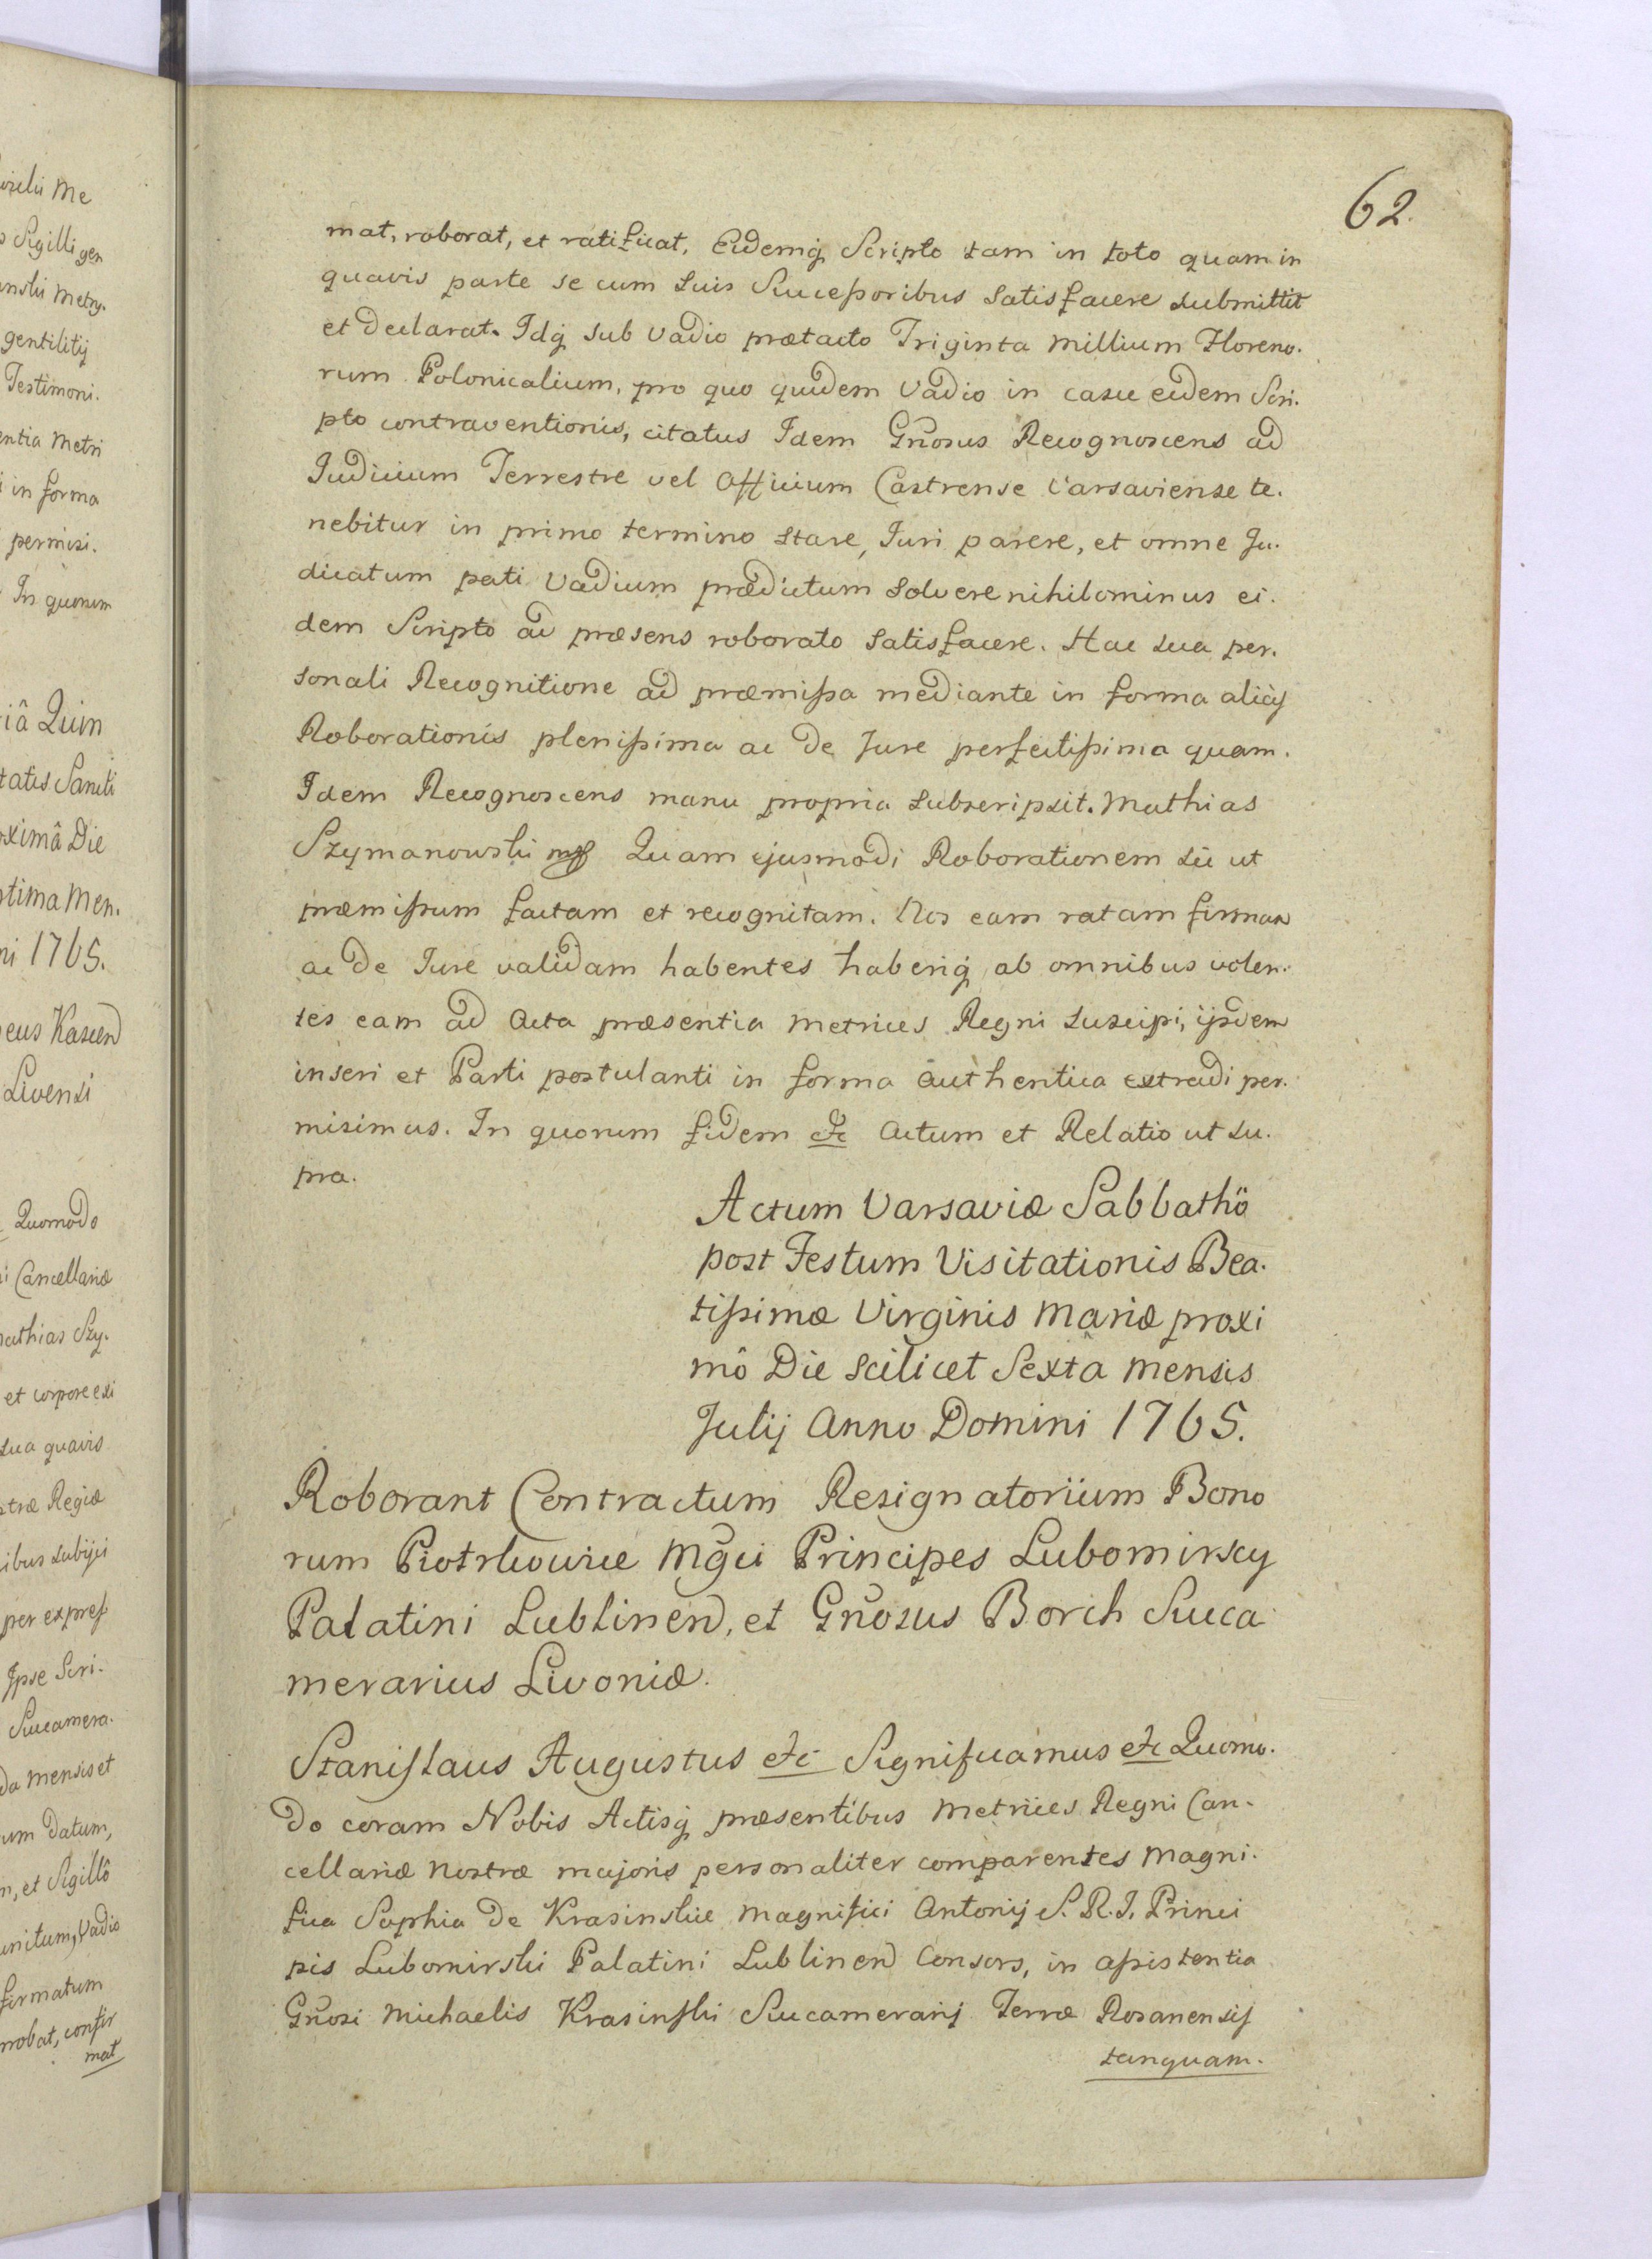 62.
mat, roborat, et ratificat. Eidemq Scripto tam in toto quam in
quavis parte se cum suis Succeſsoribus satisfacere submittit
et declarat. Idq sub vadio prætacto Triginta millium Floreno.
rum Polonicalium, pro quo quidem Vadio in casu eidem Scri.
pto contraventionis, citatus Idem Gnosus Recognoscens ad
Judicium Terrestre vel Officium Castrense Varsaviense te.
nebitur in primo termino stare, Juri parere, et omne Ju.
dicatum pati Vadium prædictum solvere nihilominus ei.
dem Scripto ad præsens roborato satisfacere. Hac sua per.
sonali Recognitione ad præmiſsa mediante in forma alicuj
Roborationis pleniſsima ac de Jure perfectiſsima quam.
Idem Recognoscens manu propria subscripsit. Mathias
Szymanowski mp Quam ejusmodi Roborationem sic ut
præmiſsum factam et recognitam. Nos eam ratam firmam
ac de Jure validam habentes haberiq ab omnibus volen.
tes eam ad Acta præsentia Metrices Regni suscipi, ijsdem
inseri et Parti postulanti in forma authentica extradi per.
misimus. In quorum fidem etc Actum et Relatio ut su.
pra.
Actum Varsaviæ Sabbathô
post Festum Visitationis Bea.
tiſsimæ Virginis Mariæ proxi
mô Die scilicet Sexta mensis
Julij Anno Domini 1765.
Roborant Contractum Resignatorium Bono
rum Piotrkowice Mgci Principes Lubomirscy
Palatini Lublinen, et Gnosus Borch Succa
merarius Livoniæ.
Stanislaus Augustus etc Significamus etc Quomo.
do coram Nobis Actisq præsentibus Metrices Regni Can.
cellariæ nostræ majoris personaliter comparentes Magni.
fica Sophia de Krasinskie Magnifici Antonij S. R. I. Princi
pis Lubomirski Palatini Lublinen Consors, in aſsistentia
Gnosi Michaelis Krasinski Succamerarij Terræ Rosanensis
tanquam.